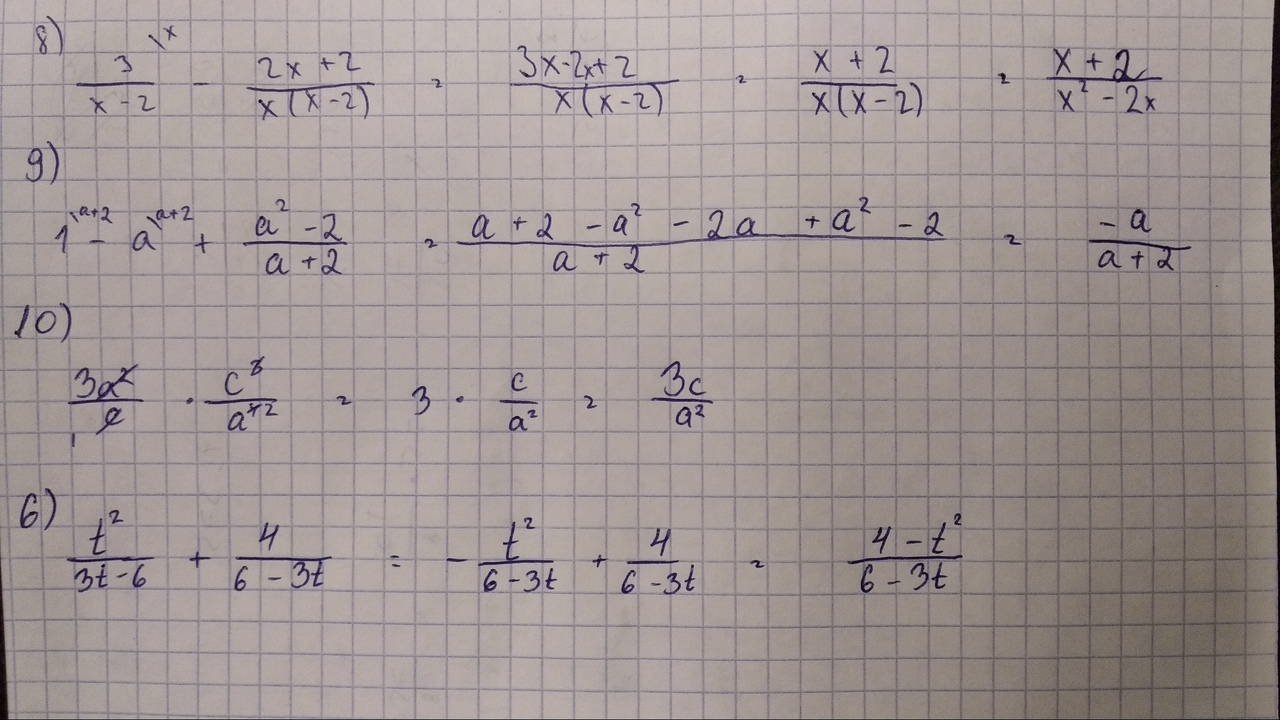 8) 3/(x-2) \x - (2x+2)/(x(x-2)) = (3x-2x+2)/(x(x-2)) = (x+2)/(x(x-2)) = (x+2)/(x²-2x)
9)
1\a+2 - a\a+2 + (a²-2)/(a+2) = (a+2-a²-2a+a²-2)/(a+2) = -a/(a+2)
10)
3a²/c · c²/a⁴² = 3 · c/a² = 3c/a²
6) t²/(3t-6) + 4/(6-3t) = - t²/(6-3t) + 4/(6-3t) = (4-t²)/(6-3t)